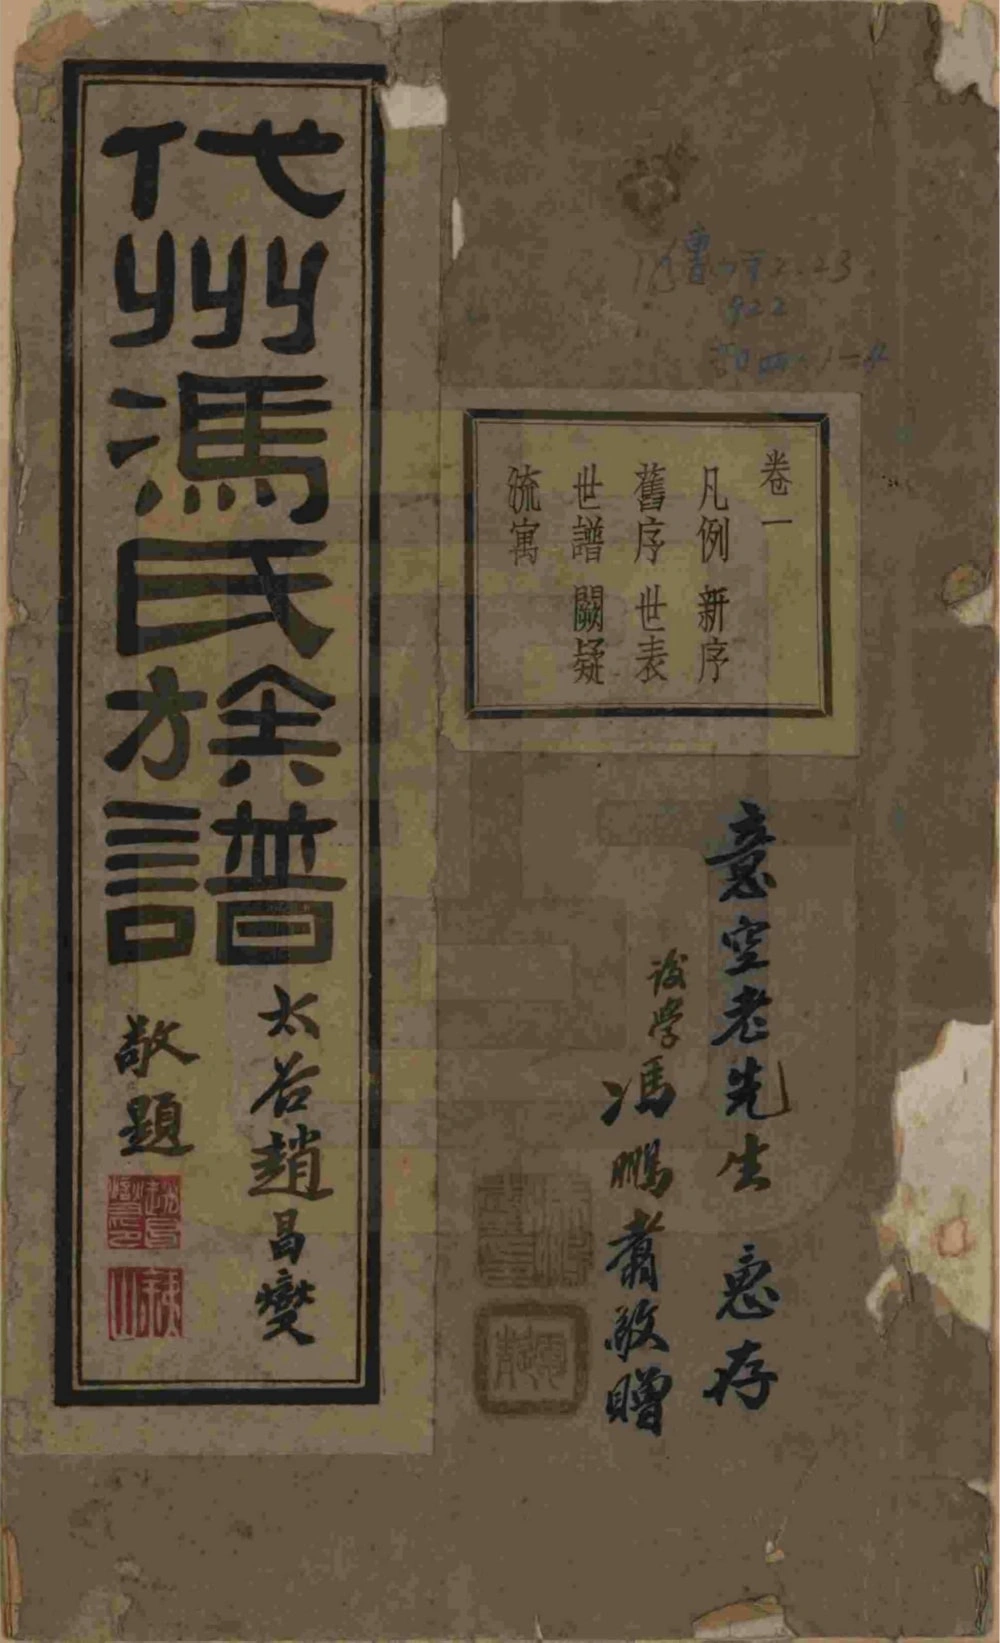 922
卷一
凡例 新序
舊序 世表
世譜 闕疑
流寓
意空老先生 惠存
後学 馮鵬翥敬贈
代州馮氏族譜
太谷趙昌燮
敬題